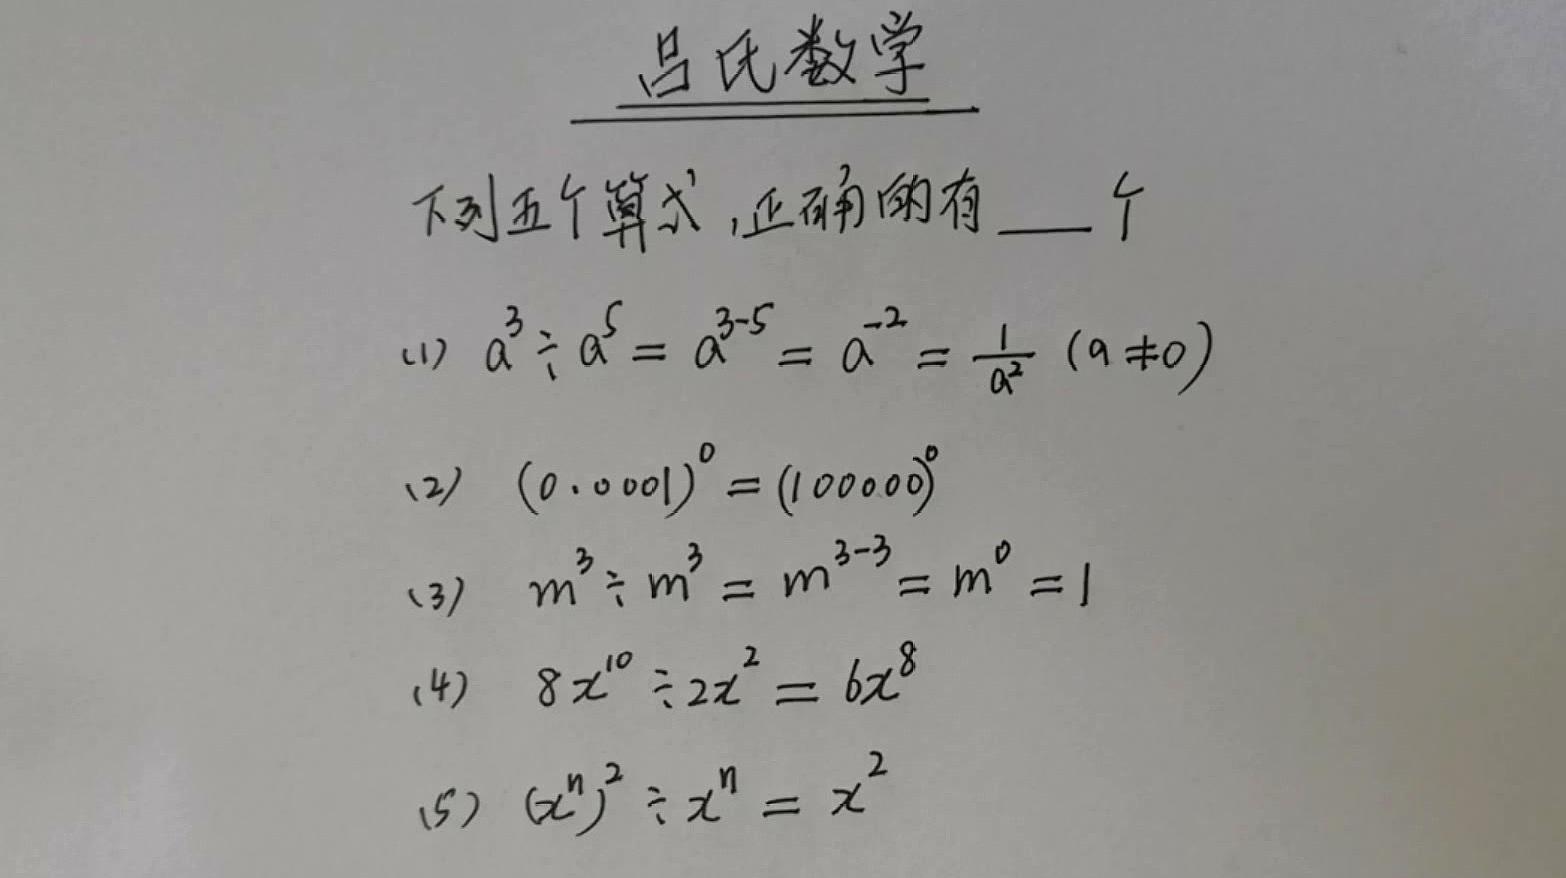 吕氏数学
下列五个算式,正确的有___个
(1) a³÷a⁵=a³⁻⁵=a⁻²=1/a² (a≠0)
(2) (0.0001)⁰=(100000)⁰
(3) m³÷m³=m³⁻³=m⁰=1
(4) 8x¹⁰÷2x²=6x⁸
(5) (xⁿ)²÷xⁿ=x²